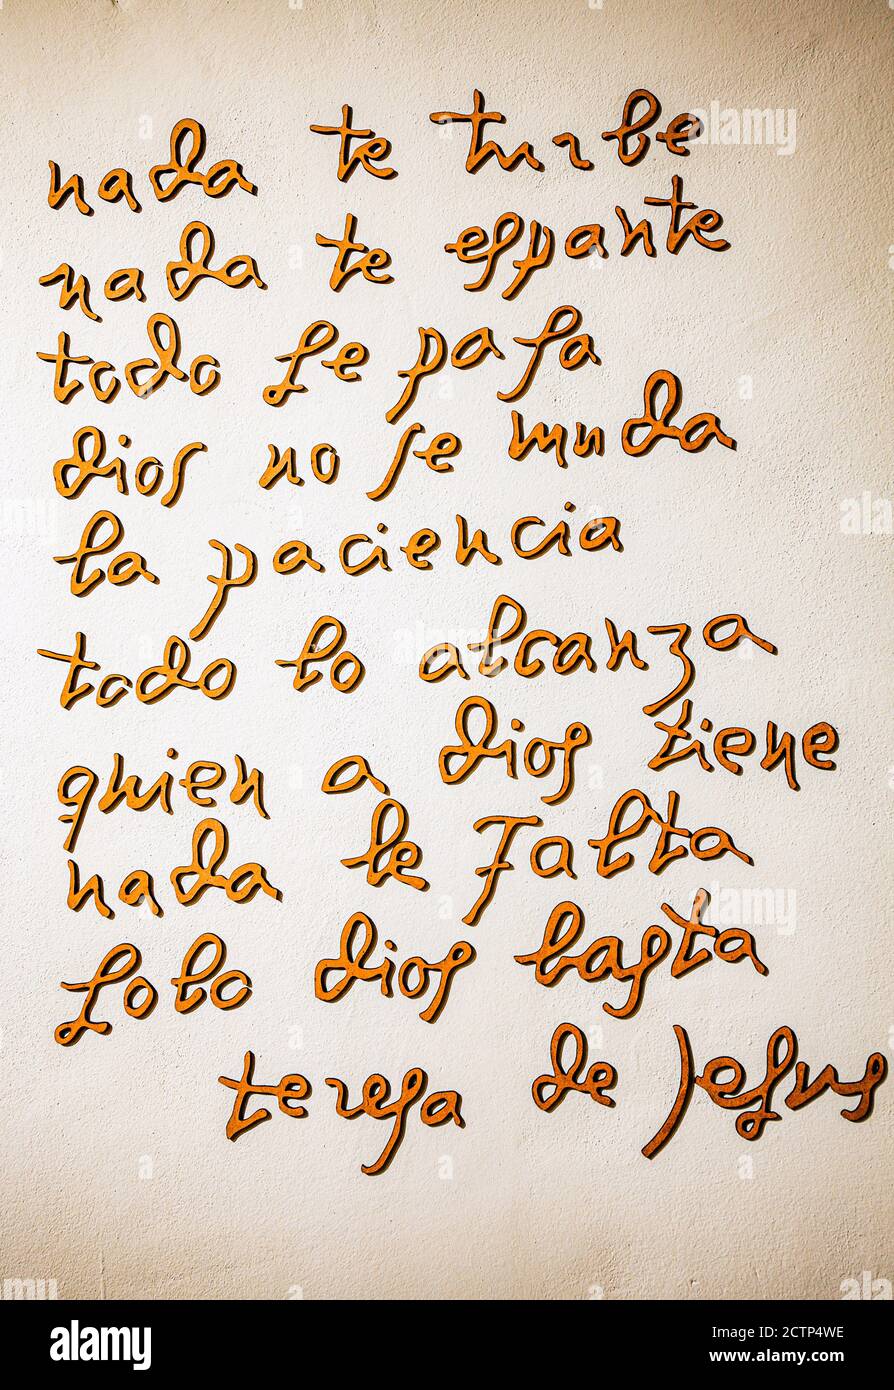 nada te turbe
nada te espante
todo se pasa
dios no se muda
la paciencia
todo lo alcanza
quien a dios tiene
nada le falta
solo dios basta
teresa de Jesus
alamy
Image ID: 2CTP4WE
www.alamy.com